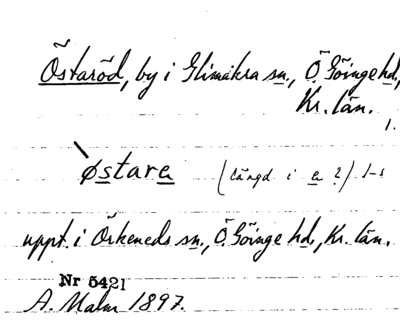 Östaröd, by i Glimåkra sn., Ö. Göinge hd.,
Kr. län.
1.
østara (längd i a ?) 1-s
uppt. i Örkeneds sn., Ö. Göinge hd., Kr. län.
Nr 5421
A. Malm 1897.